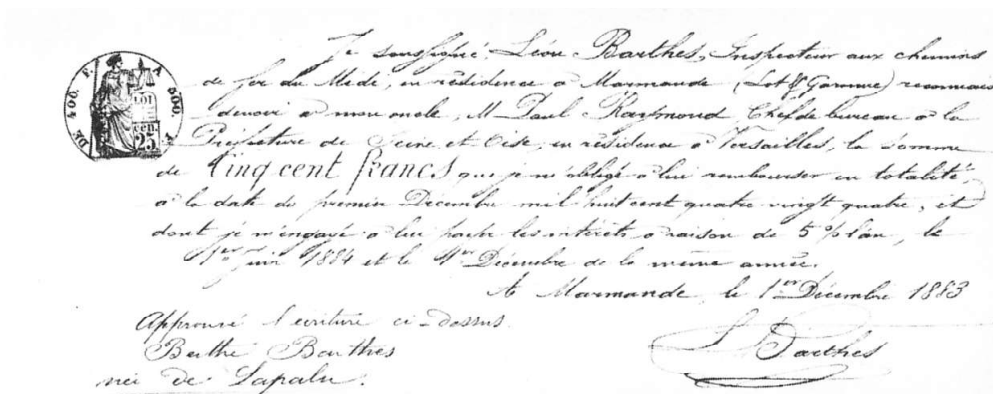 Je soussigné, Léon Barthes, Inspecteur aux chemins
de fer du Midi, en résidence à Marmande (Lot & Garonne) reconnais
devoir à mon oncle, M Paul Raymond, Chef de bureau à la
Préfecture de Seine et Oise, en résidence à Versailles, la somme
de Cinq cent francs que je m'oblige à lui rembourser en totalité,
à la date du premier Décembre mil huit cent quatre vingt quatre, et
dont je m'engage à lui les intérêts à raison de 5 % l'an, le
1er Juin 1884 et le 1er Décembre de la même année.
A Marmande, le 1er Décembre 1883
Approuvé l'écriture ci-dessus
L Barthes
Berthe Barthes
née de Lapalu.
DE 400. F. A 500. F.
LOI
cen.
25